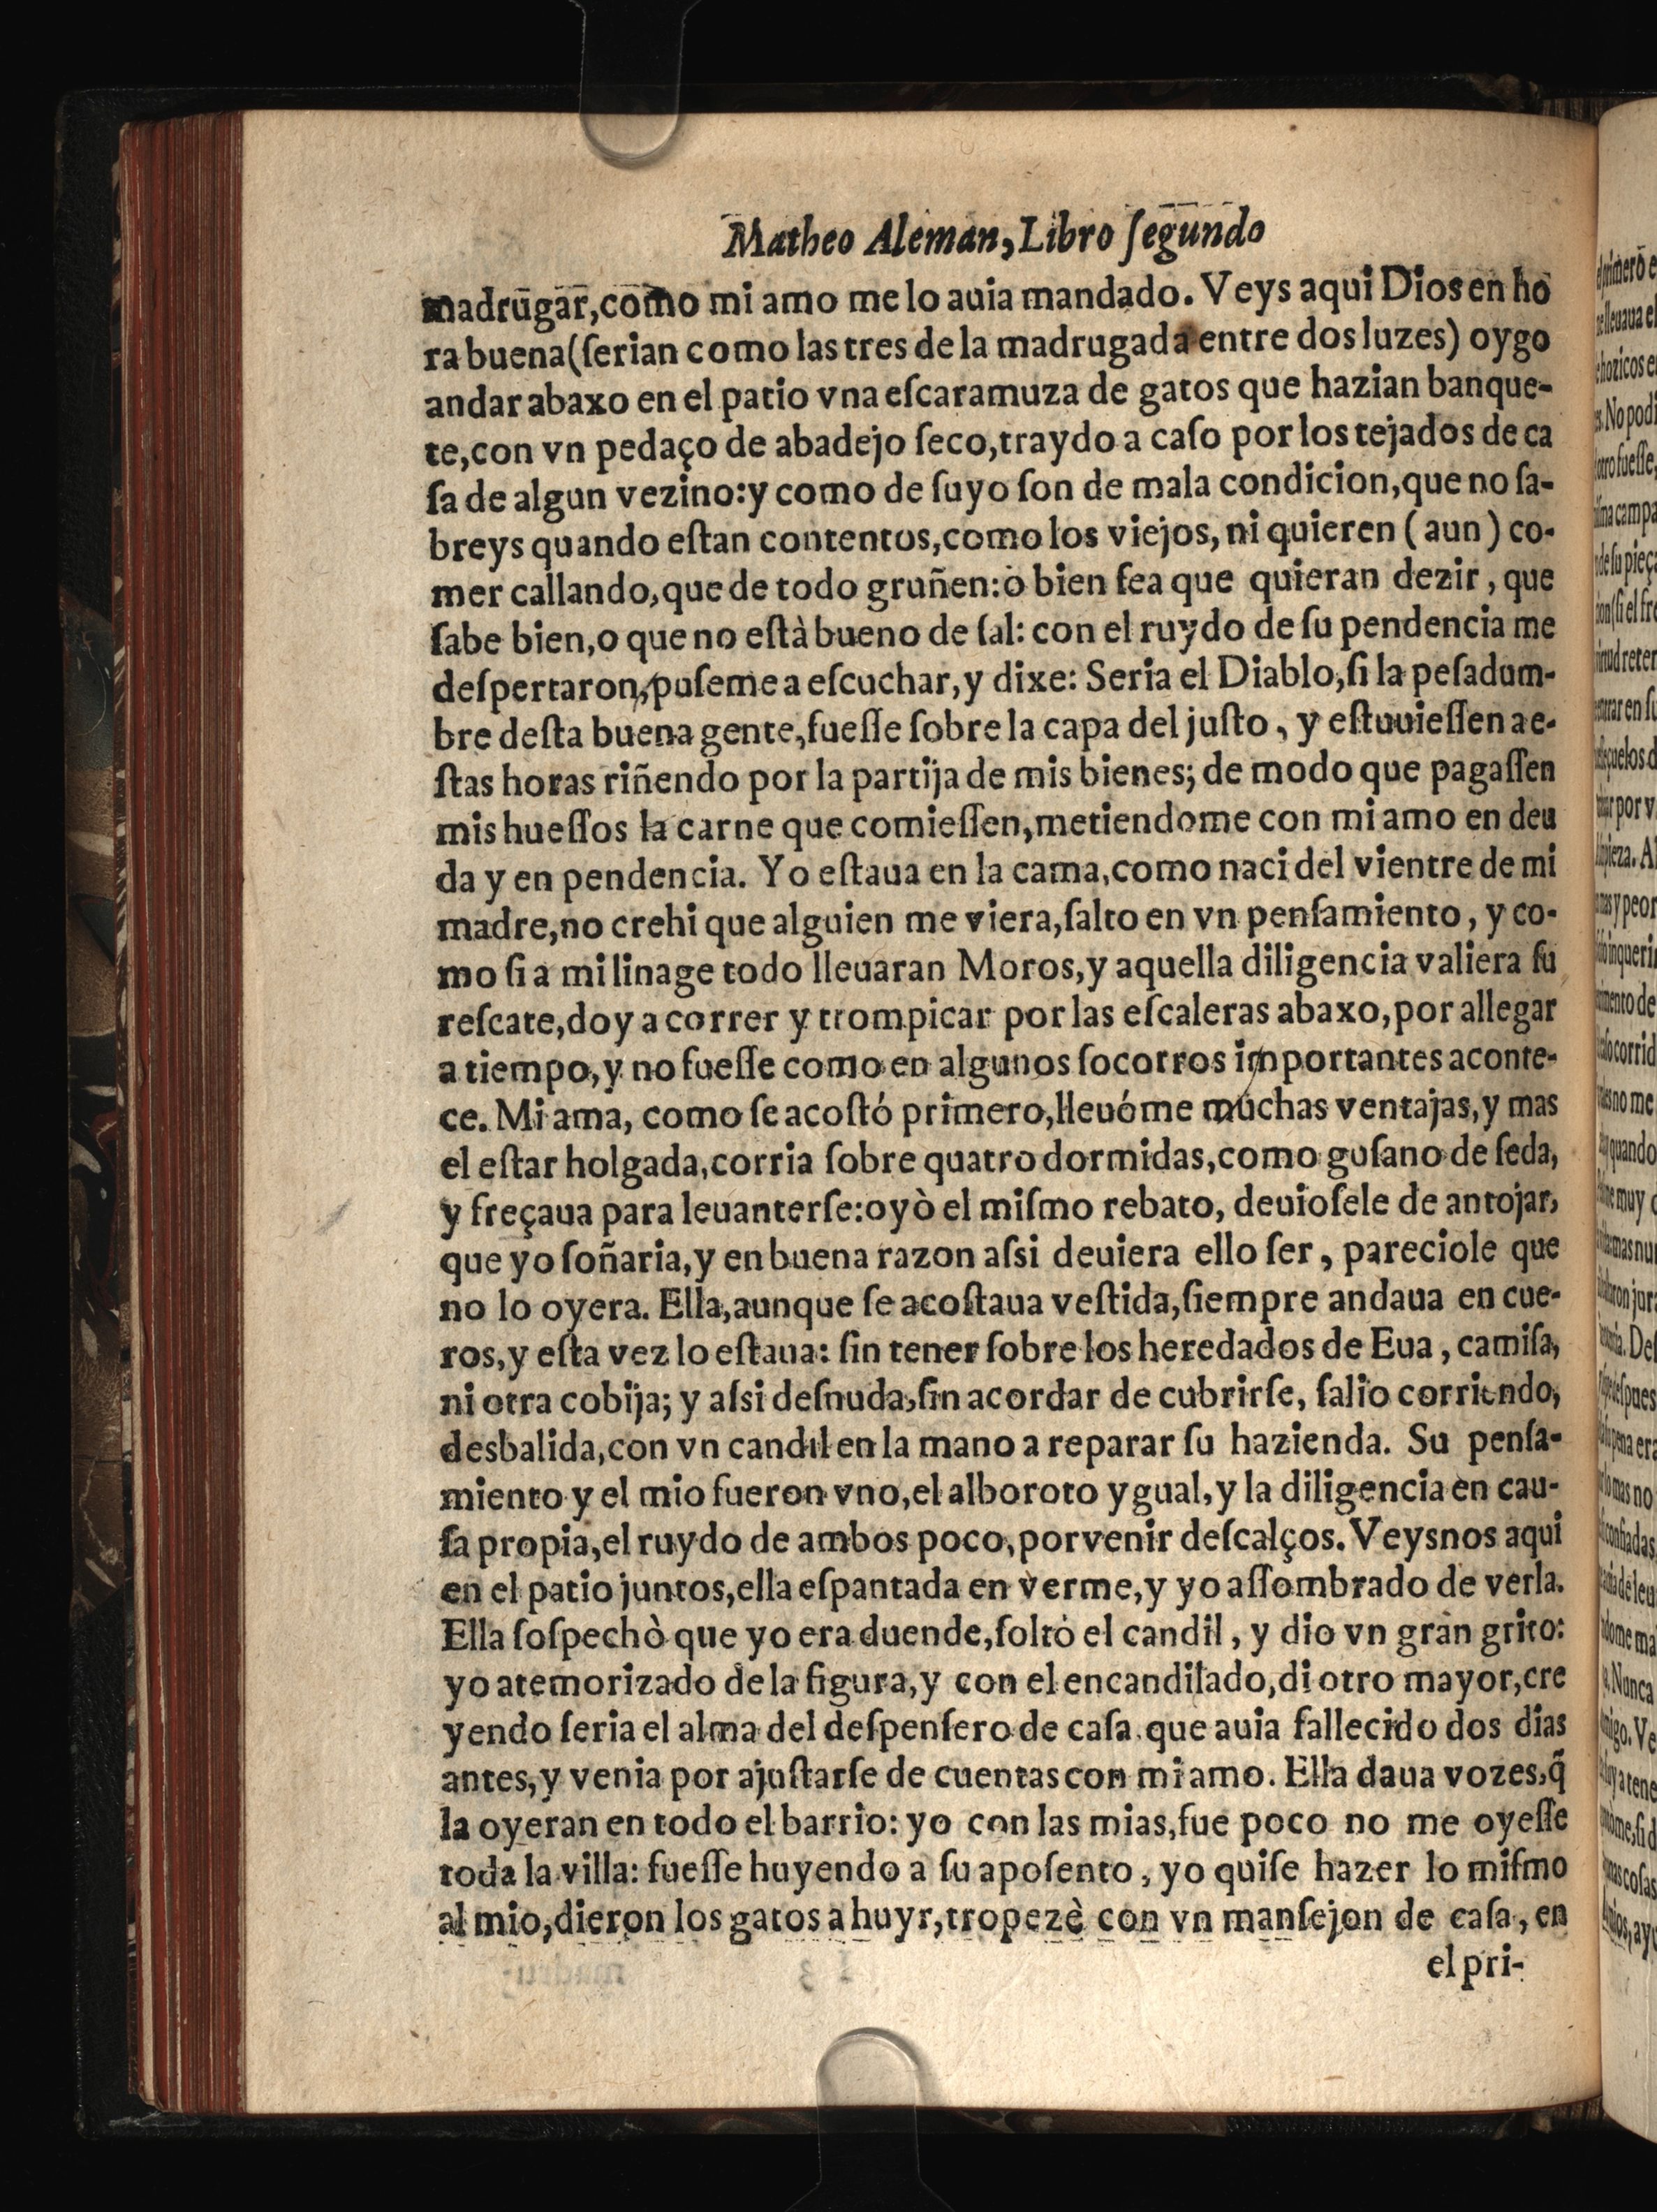 Matheo Aleman, Libro ſegundo
madrugar, como mi amo me lo auia mandado. Veys aqui Dios en ho
ra buena (ſerian como las tres de la madrugada entre dos luzes) oygo
andar abaxo en el patio vna eſcaramuza de gatos que hazian banque-
te, con vn pedaço de abadejo ſeco, traydo a caſo por los tejados de ca
ſa de algun vezino: y como de ſuyo ſon de mala condicion, que no ſa-
breys quando eſtan contentos, como los viejos, ni quieren (aun) co-
mer callando, que de todo gruñen: ò bien ſea que quieran dezir, que
ſabe bien, o que no eſtà bueno de ſal: con el ruydo de ſu pendencia me
deſpertaron, puſeme a eſcuchar, y dixe: Seria el Diablo, ſi la peſadum-
bre deſta buena gente, fueſſe ſobre la capa del juſto, y eſtuuieſſen a e-
ſtas horas riñendo por la partija de mis bienes; de modo que pagaſſen
mis hueſſos la carne que comieſſen, metiendome con mi amo en deu
da y en pendencia. Yo eſtaua en la cama, como naci del vientre de mi
madre, no crehi que alguien me viera, ſalto en vn penſamiento, y co-
mo ſi a mi linage todo lleuaran Moros, y aquella diligencia valiera ſu
reſcate, doy a correr y trompicar por las eſcaleras abaxo, por allegar
a tiempo, y no fueſſe como en algunos ſocorros importantes aconte-
ce. Mi ama, como ſe acoſtó primero, lleuóme muchas ventajas, y mas
el eſtar holgada, corria ſobre quatro dormidas, como guſano de ſeda,
y freçaua para leuanterſe: oyò el miſmo rebato, deuioſele de antojar,
que yo ſoñaria, y en buena razon aſsi deuiera ello ſer, pareciole que
no lo oyera. Ella, aunque ſe acoſtaua veſtida, ſiempre andaua en cue-
ros, y eſta vez lo eſtaua: ſin tener ſobre los heredados de Eua, camiſa,
ni otra cobija; y aſsi deſnuda, ſin acordar de cubrirſe, ſalio corriendo,
desbalida, con vn candil en la mano a reparar ſu hazienda. Su penſa-
miento y el mio fueron vno, el alboroto ygual, y la diligencia en cau-
ſa propia, el ruydo de ambos poco, por venir deſcalços. Veysnos aqui
en el patio juntos, ella eſpantada en verme, y yo aſſombrado de verla.
Ella ſoſpechò que yo era duende, ſoltò el candil, y dio vn gran grito:
yo atemorizado de la figura, y con el encandilado, di otro mayor, cre
yendo ſeria el alma del deſpenſero de caſa que auia fallecido dos dias
antes, y venia por ajuſtarſe de cuentas con mi amo. Ella daua vozes, q̃
la oyeran en todo el barrio: yo con las mias, fue poco no me oyeſſe
toda la villa: fueſſe huyendo a ſu apoſento, yo quiſe hazer lo miſmo
al mio, dieron los gatos a huyr, tropezè con vn manſejon de caſa, en
el pri-